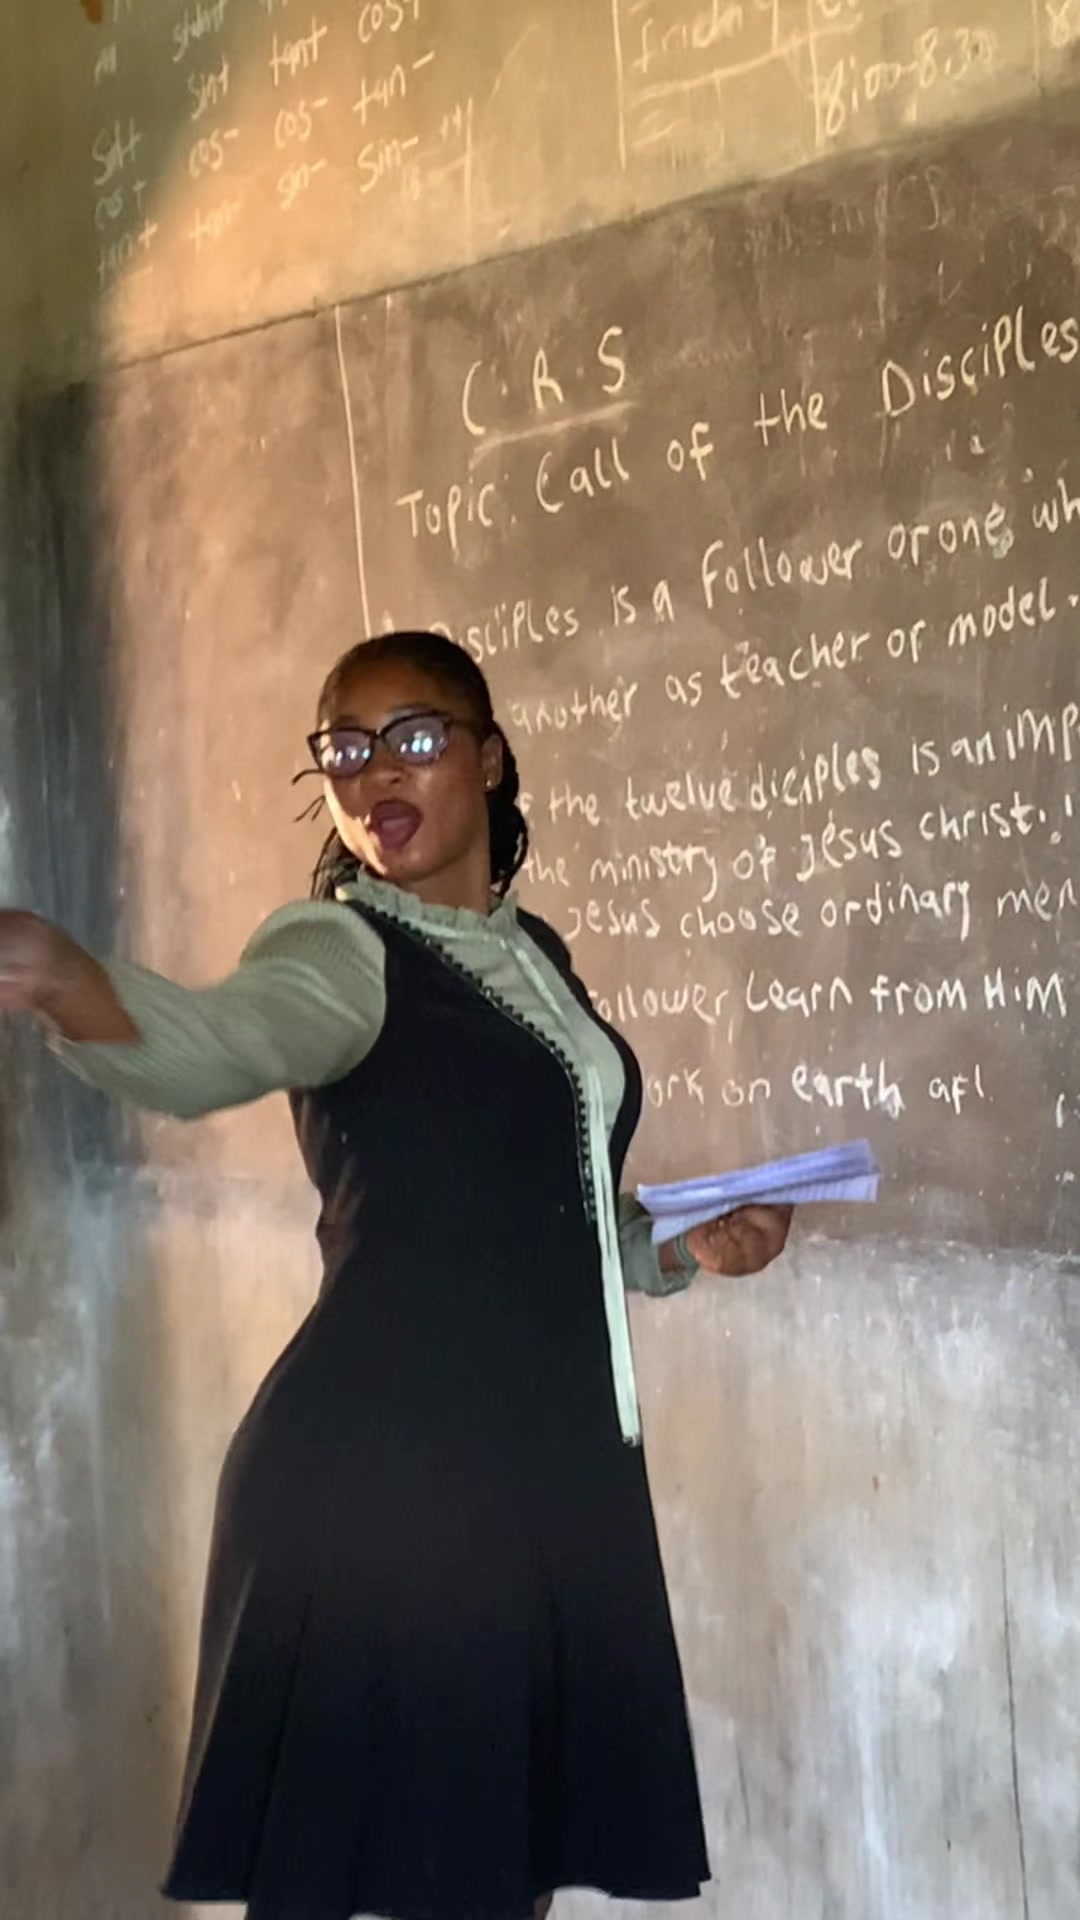 sint tant cos+
cos- cos- tan-
sin- sin-
cos+
tan+
friday
8:00-8.30
C.R.S
Topic: Call of the Disciples
Disciples is a follower or one wh
another as teacher or model.
the twelve diciples is an imp
the ministry of Jesus christ.
Jesus choose ordinary men
ollower, Learn from HiM
ork on earth aft